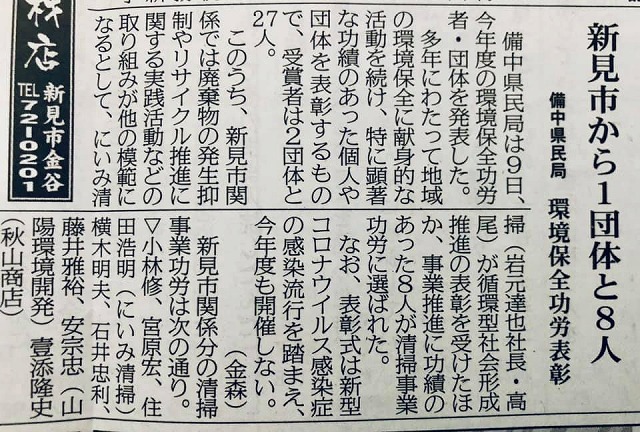 新見市から1団体と8人
備中県民局　環境保全功労表彰
備中県民局は9日、
今年度の環境保全功労
者・団体を発表した。
多年にわたって地域
の環境保全に献身的な
活動を続け、特に顕著
な功績のあった個人や
団体を表彰するもの
で、受賞者は2団体と
27人。
このうち、新見市関
係では廃棄物の発生抑
制やリサイクル推進に
関する実践活動などの
取り組みが他の模範に
なるとして、にいみ清
掃（岩元達也社長・高
尾）が循環型社会形成
推進の表彰を受けたほ
か、事業推進に功績の
あった8人が清掃事業
功労に選ばれた。
なお、表彰式は新型
コロナウイルス感染症
の感染流行を踏まえ、
今年度も開催しない。
（金森）
新見市関係分の清掃
事業功労は次の通り。
▽小林修、宮原宏、住
田浩明（にいみ清掃）
横木明夫、石井忠利、
藤井雅裕、安宗忠（山
陽環境開発）壹添隆史
（秋山商店）
店
新見市金谷
TEL72-0201